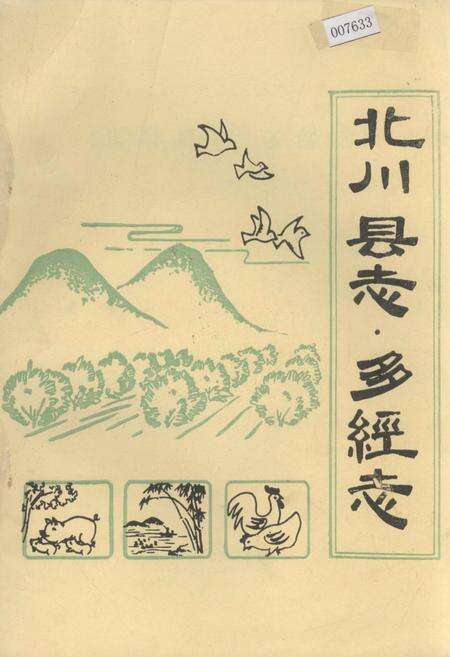 007633
北川县志·多經志